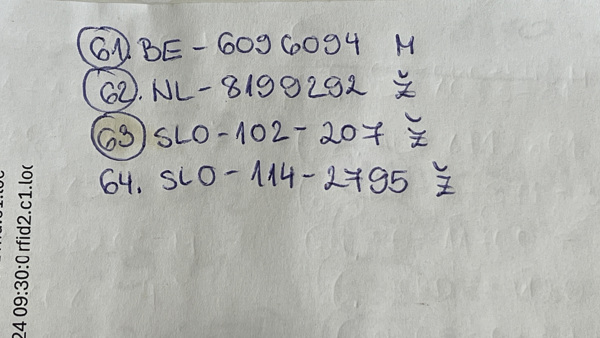 61. BE - 6096094 M
62. NL - 8199292 Ž
63 SLO - 102 - 207 Ž
64. SLO - 114 - 2795 Ž
24 09:30:0 rfid2.c1.loc